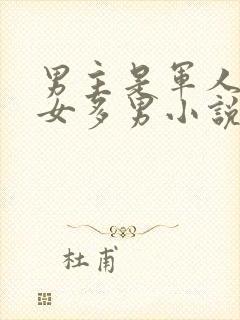 男主是军人
女多男小說
杜甫